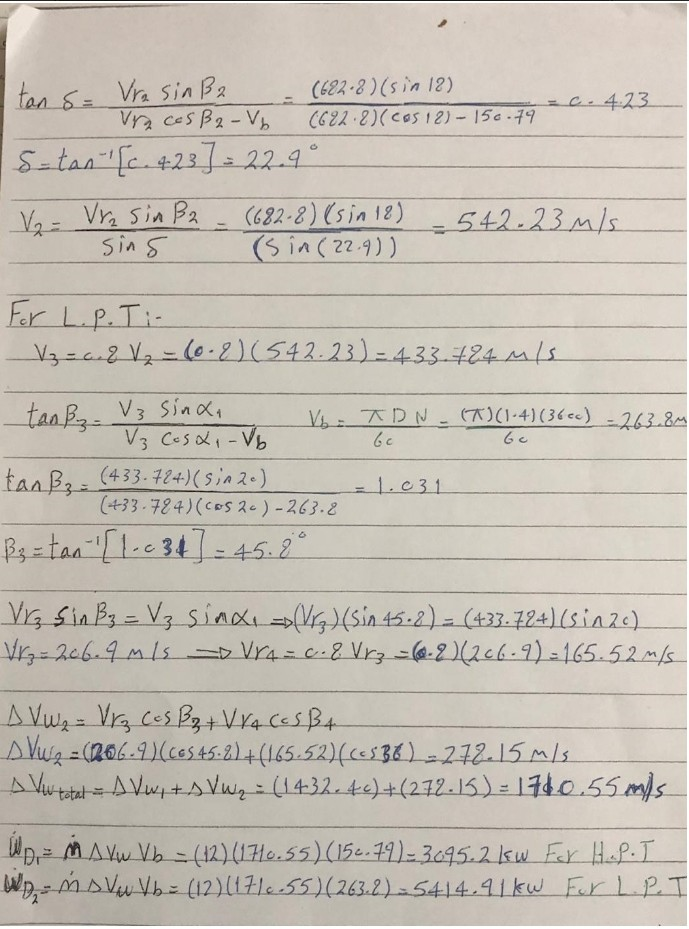 tan δ = Vr₂ sin β₂ / Vr₂ cos β₂ - Vb = (682.8)(sin 18) / (682.8)(cos 18) - 150.79 = 0.423
δ = tan⁻¹[0.423] = 22.9°
V₂ = Vr₂ sin β₂ / sin δ = (682.8)(sin 18) / (sin(22.9)) = 542.23 m/s
For L.P.T:-
V₃ = 0.8 V₂ = (0.8)(542.23) = 433.784 m/s
tan β₃ = V₃ sin α₁ / V₃ cos α₁ - Vb Vb = π D N / 60 = (π)(1.4)(3600) / 60 = 263.8 m
tan β₃ = (433.784)(sin 20) / (433.784)(cos 20) - 263.8 = 1.031
β₃ = tan⁻¹[1.031] = 45.8°
Vr₃ sin β₃ = V₃ sin α₁ ⇒ (Vr₃)(sin 45.8) = (433.784)(sin 20)
Vr₃ = 206.9 m/s ⇒ Vr₄ = 0.8 Vr₃ = (0.8)(206.9) = 165.52 m/s
ΔVw₂ = Vr₃ cos β₃ + Vr₄ cos β₄
ΔVw₂ = (206.9)(cos 45.8) + (165.52)(cos 36) = 278.15 m/s
ΔVw total = ΔVw₁ + ΔVw₂ = (1432.40) + (278.15) = 1710.55 m/s
ẆD₁ = ṁ ΔVw Vb = (12)(1710.55)(150.79) = 3095.2 kw For H.P.T
ẆD₂ = ṁ ΔVw Vb = (12)(1710.55)(263.8) = 5414.91 kw For L.P.T